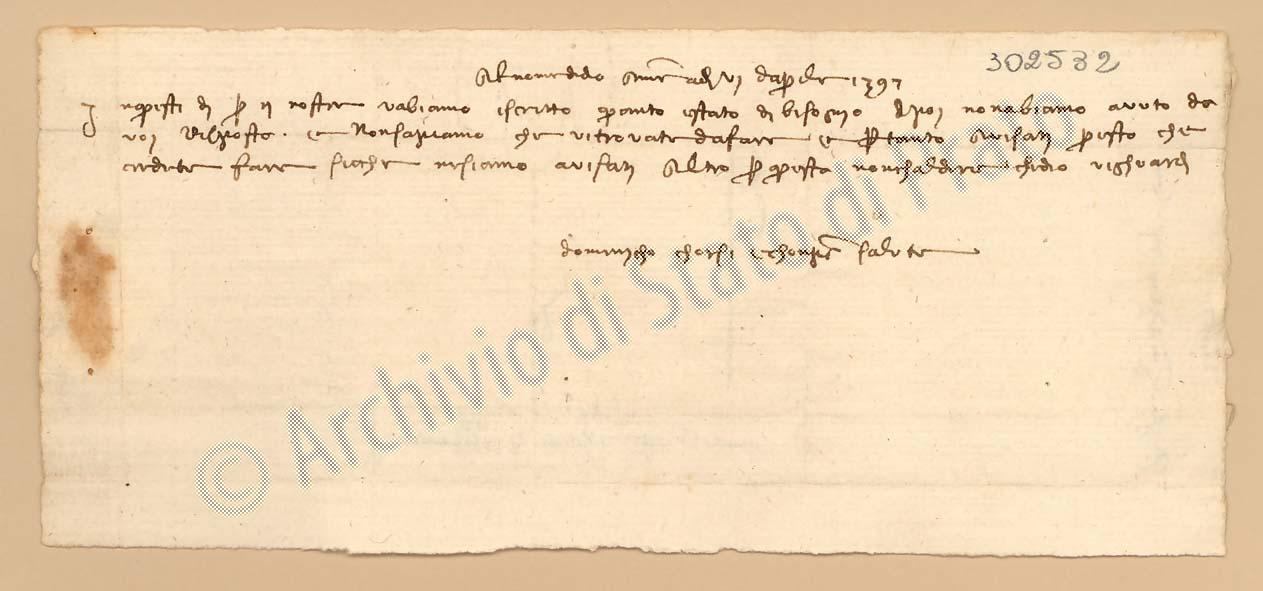 302532
Al nome di dio Amen adì VI d'aprile 1397
In questi dì per II nostre v'abiamo iscritto quanto è stato di bisogno dipoi non abiamo avuto da
voi risposta. e non sapiamo che vi trovate da fare e pertanto avisati presto che
credete fare sicché ne siamo avisati Altro per questa non ch'al dire chidio vi ghuardi
domenicho chorsi e chonpa salute
© Archivio di Stato di Prato